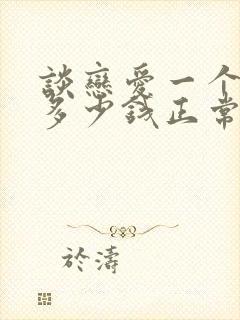 談戀愛一个
多少錢正常
於濤